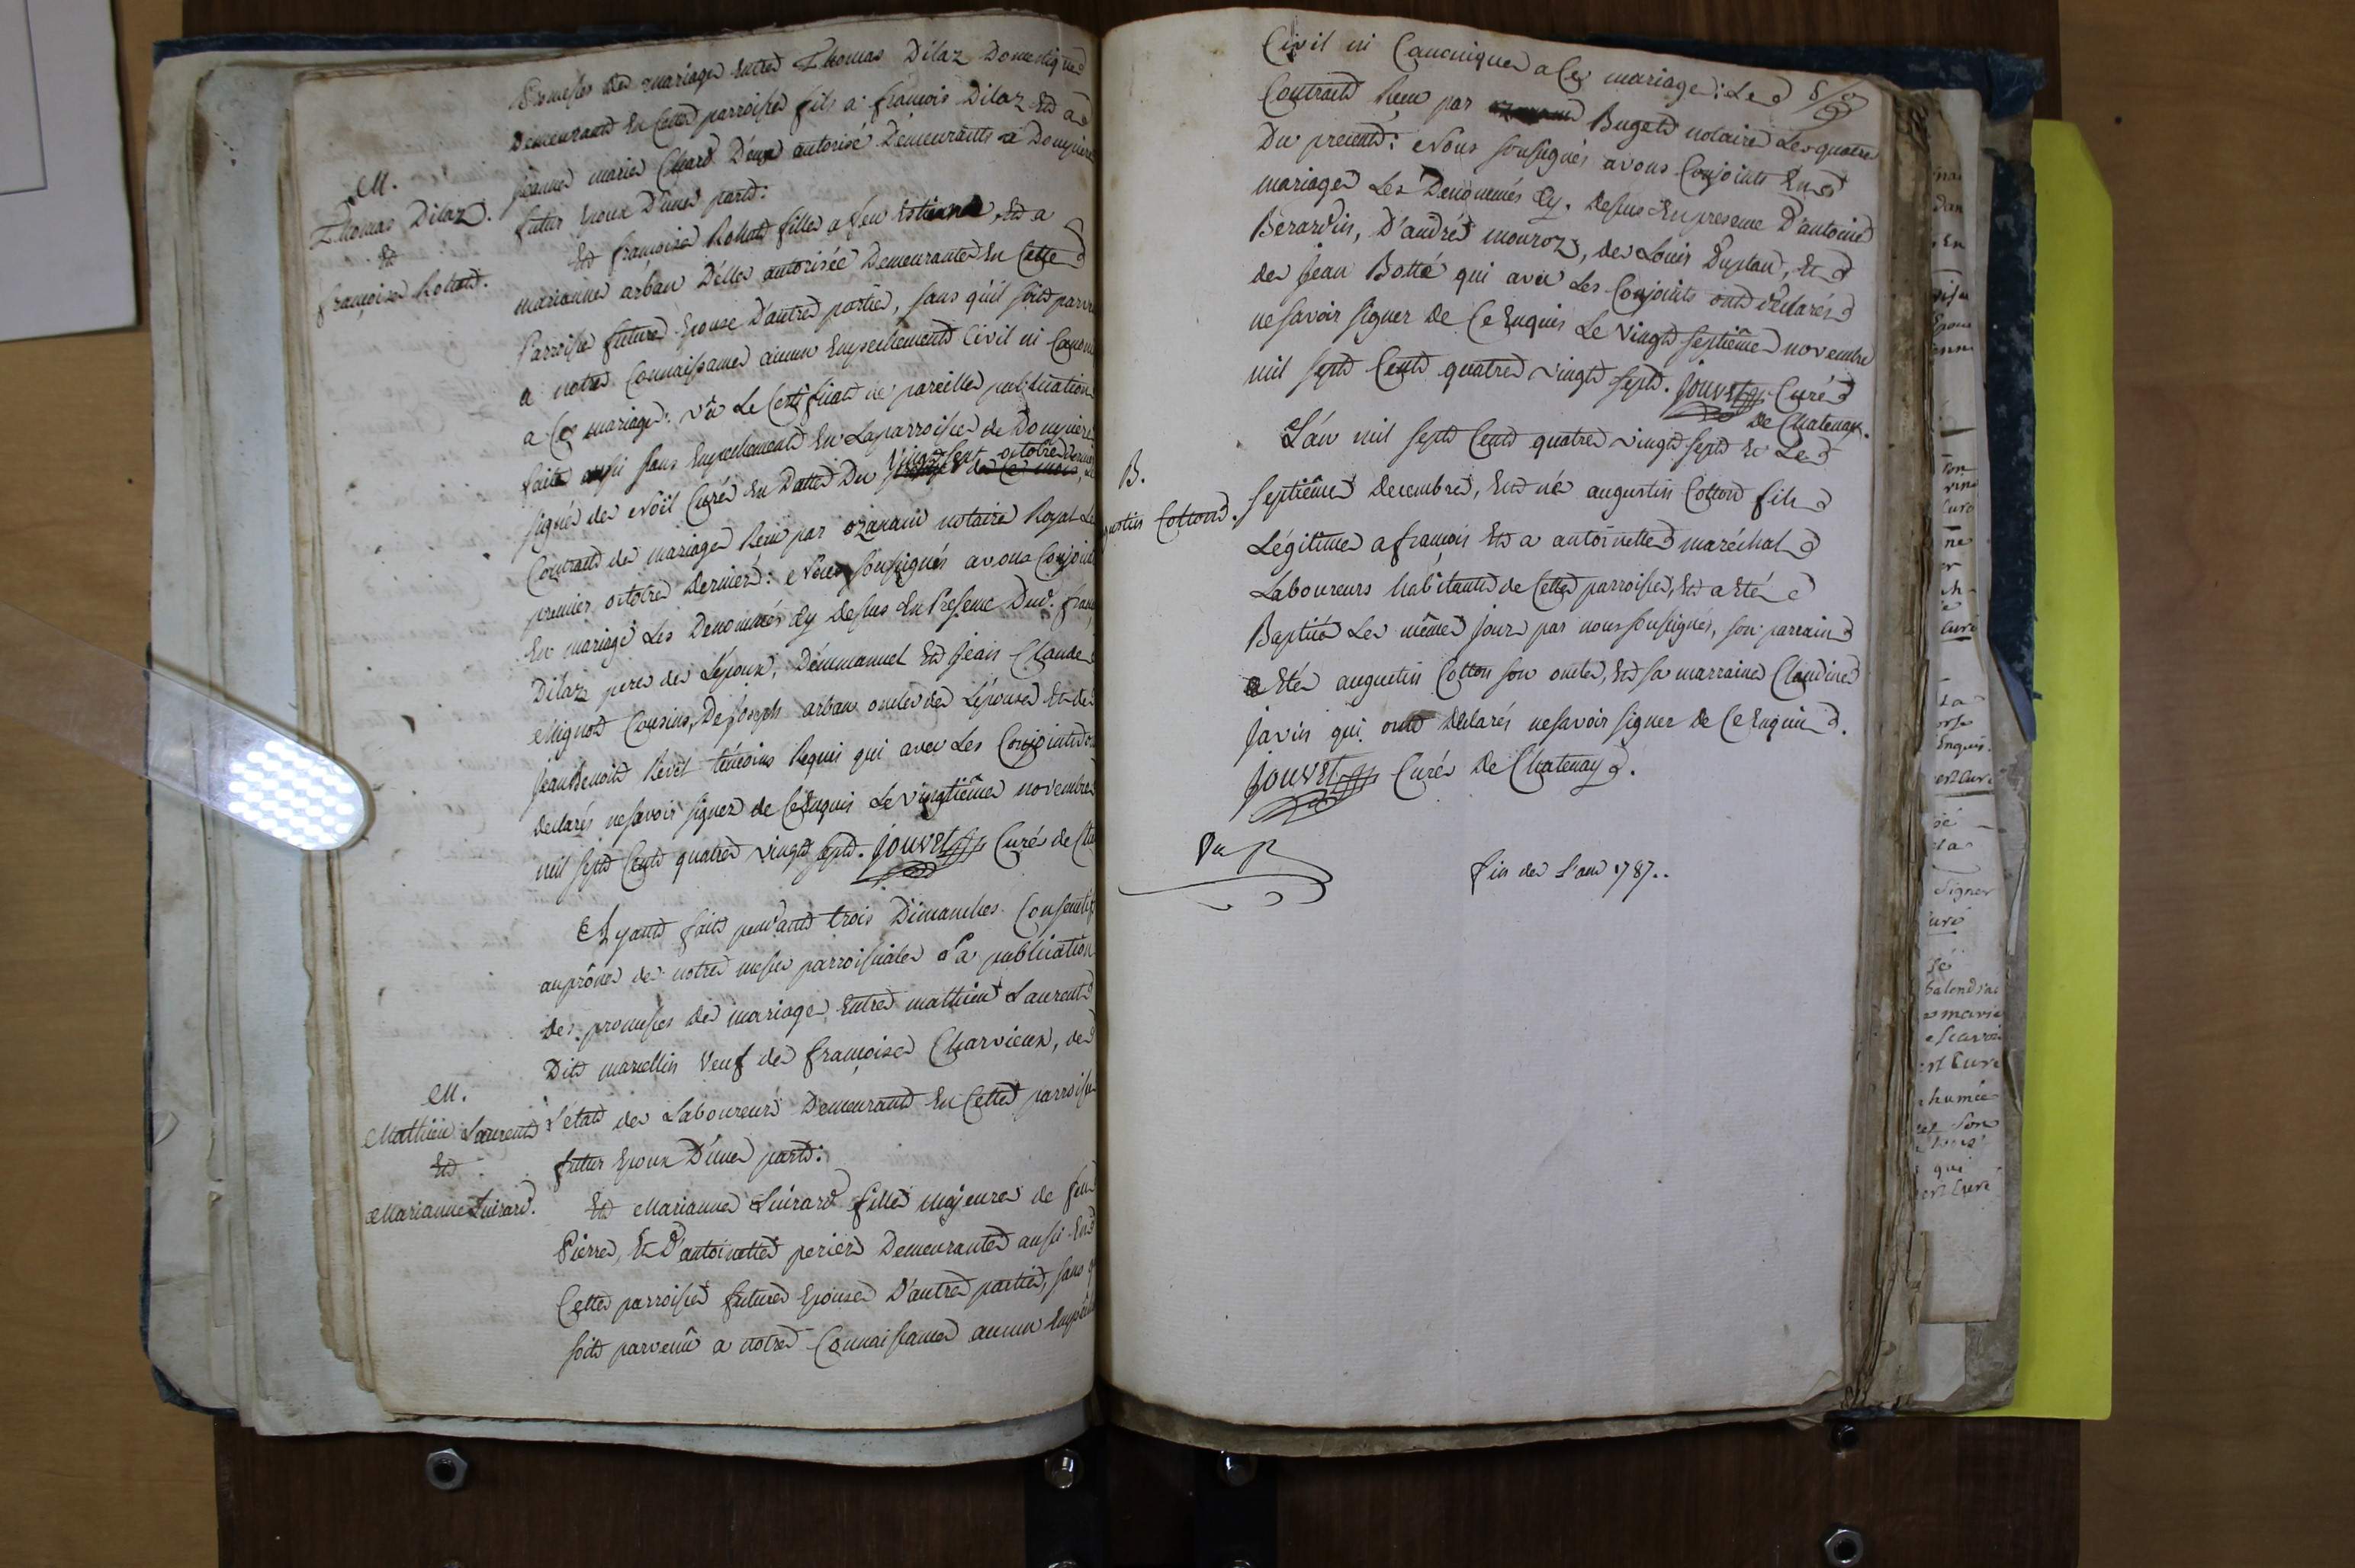 Promesses de mariage Entre Thomas Dilaz Domestique
Demeurant En Cette parroisse fils a françois Dilaz Et a
jeanne marie Chard D'eux autorisé Demeurants a Dompierre
futur Epoux D'une part:
M.
Thomas Dilaz.
Et
françoise Rohat.
Et françoise Rohat fille a feu Estienne, Et a
marianne arban D'elle autorisée Demeurante En Cette
Parroisse future Epouse D'autre partie, sans qu'il soit parvenu
a notre Connaissance aucun Empechement Civil ni Canoni
a Ce mariage: vû Le Certificat de pareille publication
faite aussi sans Empechement En La parroisse de Dompierre
signé de Noël Curé En Datte Du vingt sept octobre dernier
Contrat de mariage Reçu par ozanam notaire Royal Le
premier octobre dernier: Nous soussignés avons Conjoint
En mariage Les Denommés Cy dessus En Presence Dud. franç
Dilaz pere de L'epoux, D'emmanuel Et jean Claude
Mignot Cousins, De joseph arban oncle de L'épouse Et de
jean Benoit Revel témoins Requis qui avec Les Conjoints on
declarés ne savoir signer de Ce Enquis Le vingtième novembre
mil sept Cent quatre vingt sept. jouvet Curé de Cha
Ayant fait pendant trois Dimanches Consecutif
au prône de notre messe parroissiale La publication
des promesses de mariage Entre mathieu Laurent
Dit marcellin Veuf de françoise Charvieux, de
l'état de Laboureur Demeurant En Cette parroisse
futur Epoux D'une part:
M.
Mathieu Laurent
Et
Marianne Suirard.
Et Marianne Suirard fille majeure de feu
Pierre, Et D'antoinette perier Demeurante aussi En
Cette parroisse future Epouse D'autre partie, sans q
soit parvenû a notre Connaissance aucun Empêche
Civil ni Canonique a Ce mariage: Le
Contrat Reçu par Buget notaire Le quatre
Du present: Nous soussignés avons Conjoints En
mariage Les Denommés Cy. dessus En presence D'antoine
Berardin, D'andré mouroz, de Louis Duplan, Et
de jean Botté qui avec Les Conjoints ont déclarés
ne savoir signer de Ce Enquis Le vingt septième novembre
mil sept Cent quatre vingt sept. jouvet Curé
de Chatenay.
B.
ustin Cotton.
L'an mil sept Cent quatre vingt sept Et Le
septième Decembre, Est né augustin Cotton fils
Légitime a françois Et a antoinette maréchal
Laboureurs habitants de Cette parroisse, Et a Eté
Baptisé Le même jour par nous soussignés, son parrain
a Eté augustin Cotton son oncle, Et sa marraine Claudine
javin qui ont declarés ne savoir signer de Ce Enquis.
jouvet Curé De Chatenay.
fin de L'an 1787..